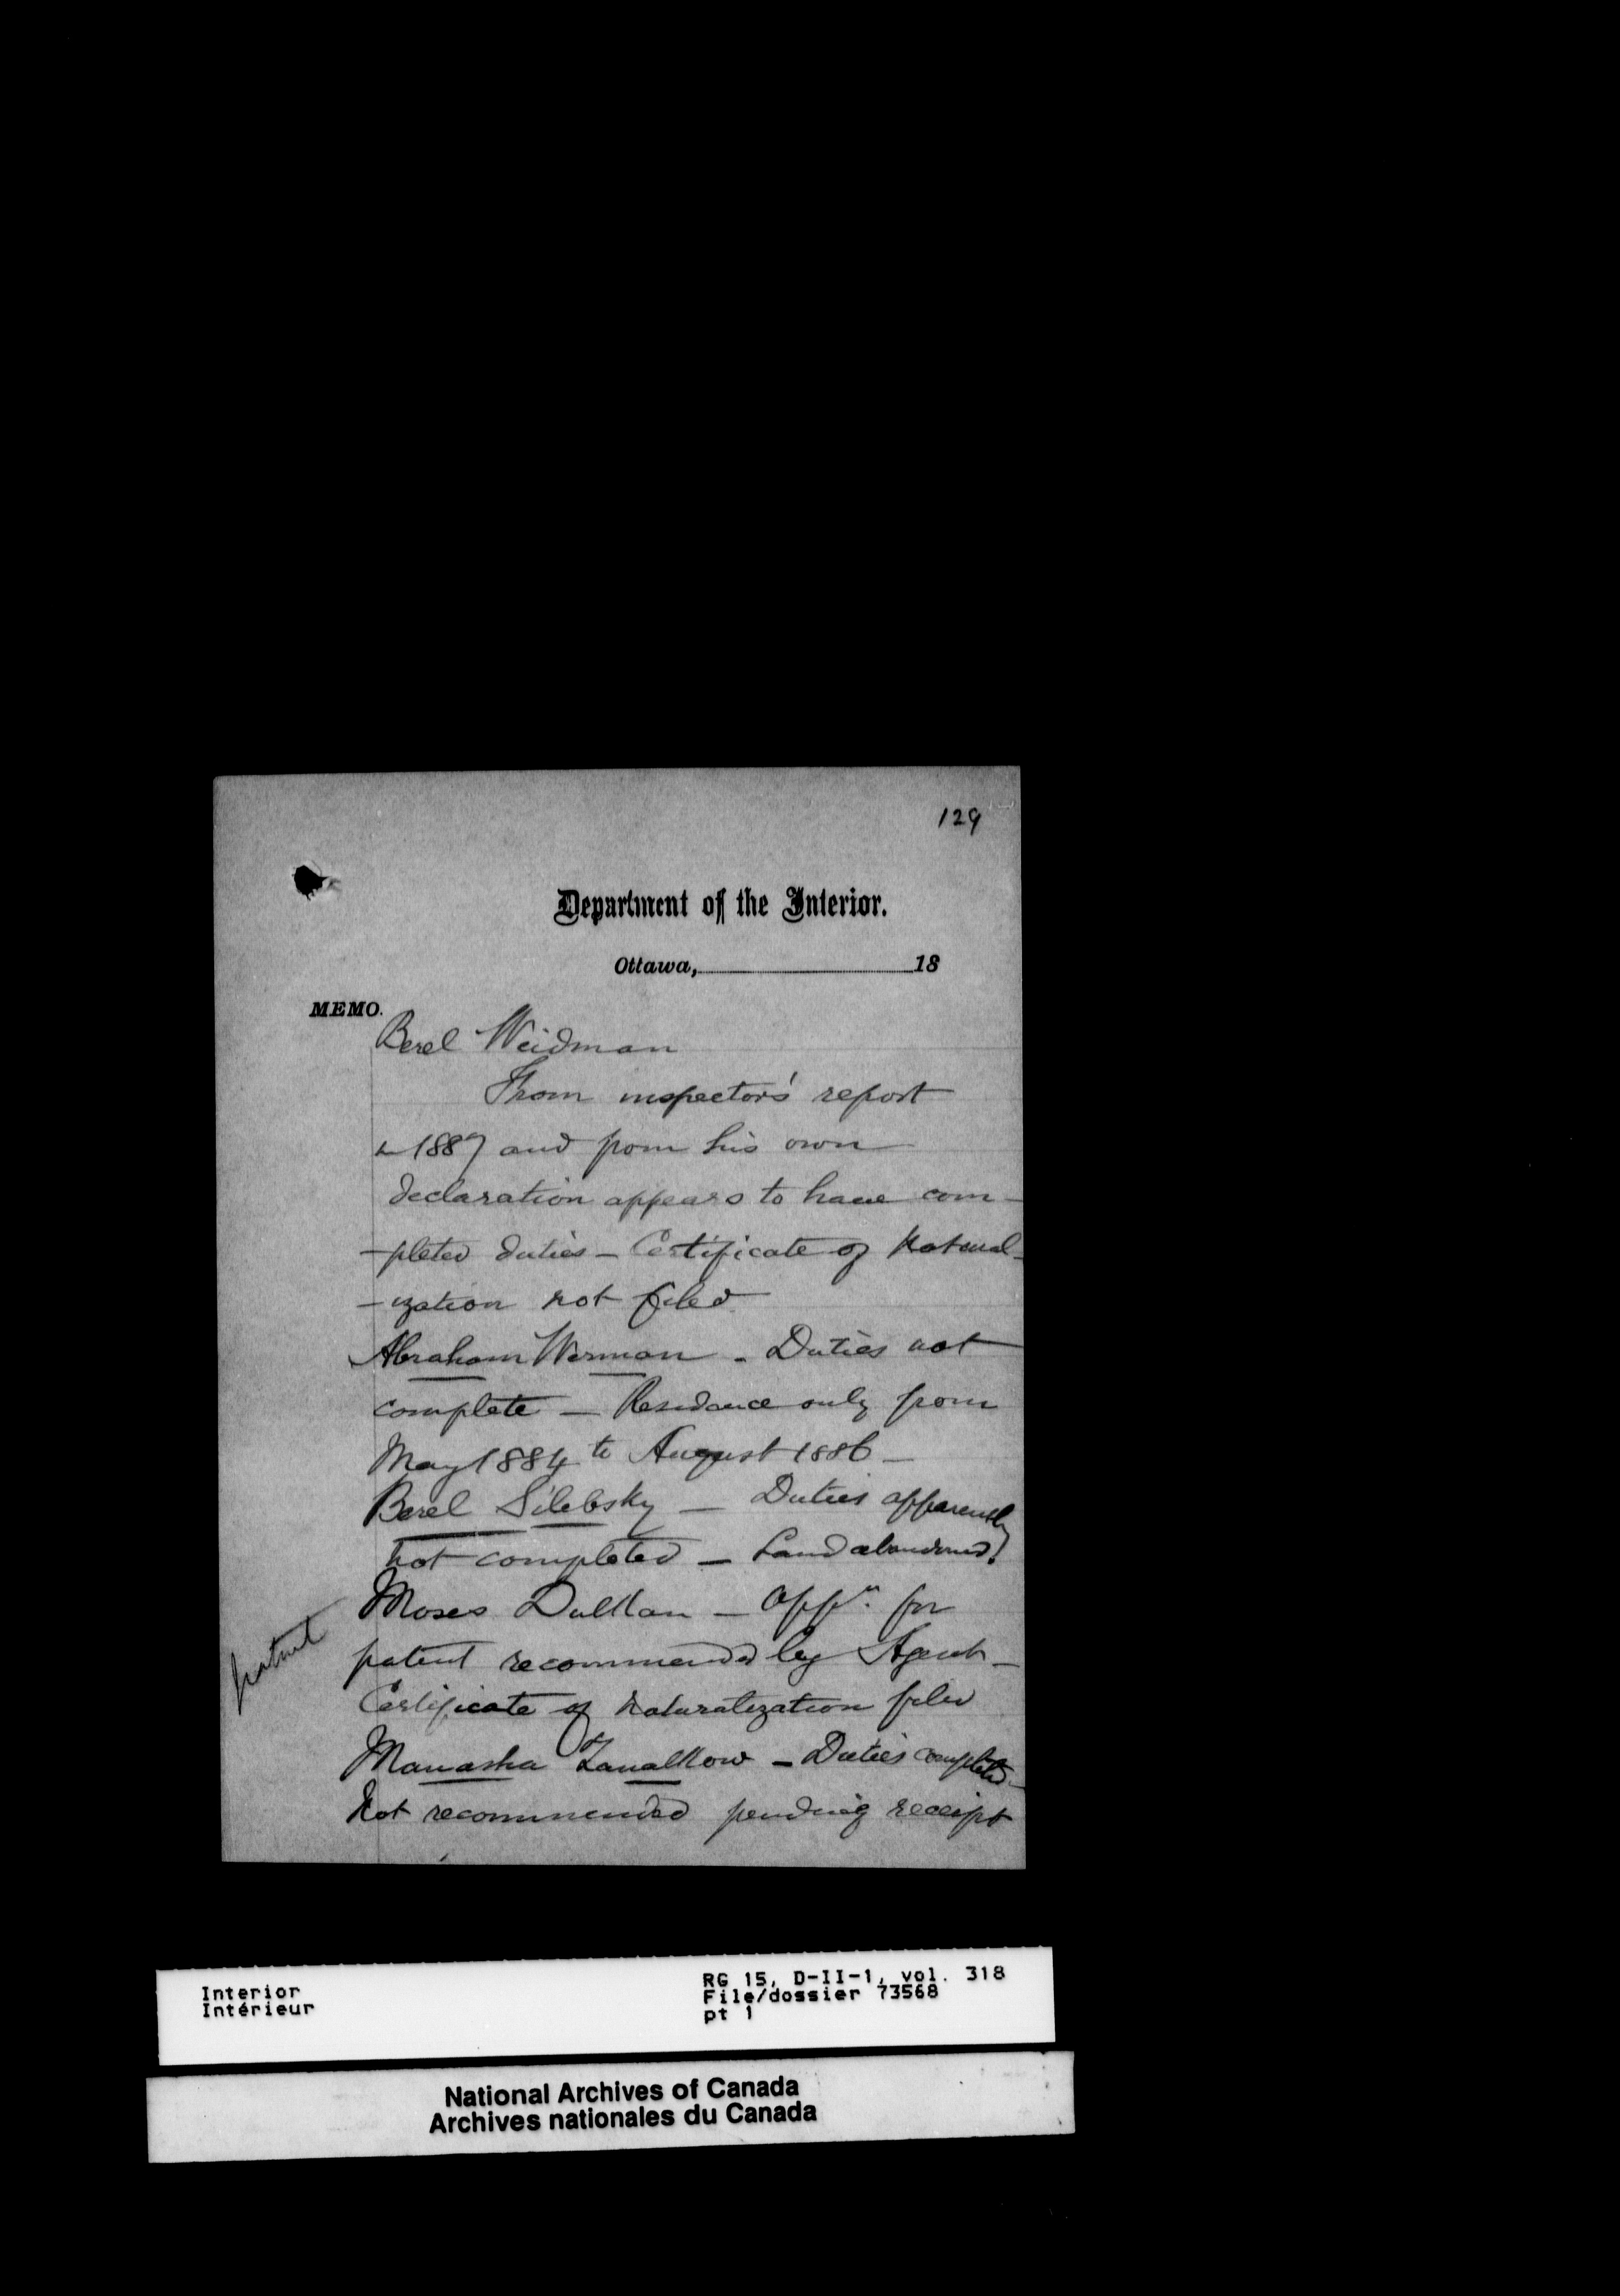 129
Department of the Interior.
Ottawa, 18
MEMO.
Berel Weidman
From inspector's report
1887 and from his own
declaration appears to have com-
-pleted duties - Certificate of Natural-
-ization not filed
Abraham Werman - Duties not
complete - Residence only from
May 1884 to August 1886 -
Berel Silebsky - Duties apparently
not completed - Land abandoned.
Moses Dulkan - Appn. for
patent
patent recommended by Agent -
Certificate of Naturalization filed
Manasha Zanalkow - Duties completed -
Not recommended pending receipt
Interior
Intérieur
RG 15, D-II-1, vol. 318
File/dossier 73568
pt 1
National Archives of Canada
Archives nationales du Canada